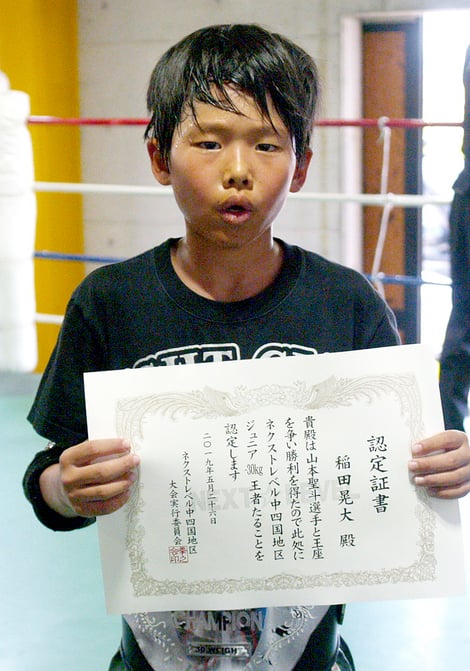 認定証書
稲田晃大 殿
貴殿は山本聖斗選手と王座
を争い勝利を得たので此処に
ネクストレベル中四国地区
ジュニア-30kg 王者たることを
認定します
二〇一九年五月二十六日
ネクストレベル中四国地区
大会実行委員会
CHAMPION